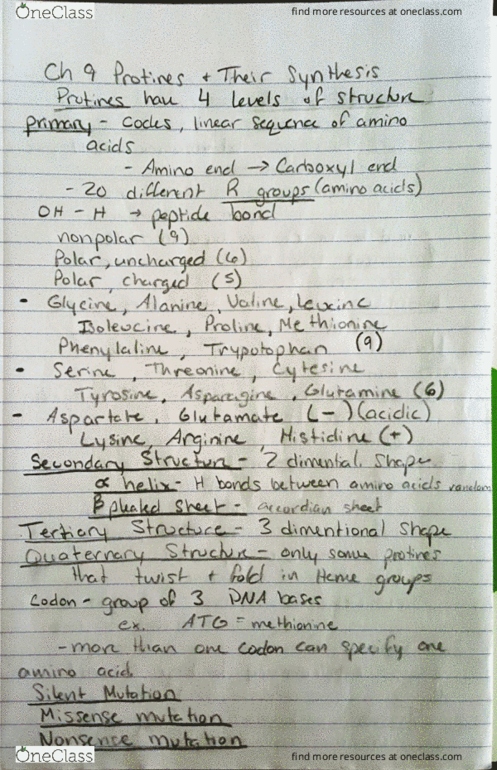 OneClass find more resources at oneclass.com
Ch 9 Protines + Their Synthesis
Protines have 4 levels of structure
primary - codes, linear sequence of amino
acids
- Amino end → Carboxyl end
- 20 different R groups (amino acids)
OH - H → peptide bond
nonpolar (9)
Polar, uncharged (6)
Polar, charged (5)
- Glycine, Alanine, Valine, Leucine
Isoleucine, Proline, Methionine
Phenylaline, Trypotophan (9)
- Serine, Threonine, Cytesine
Tyrosine, Asparagine, Glutamine (6)
- Aspartate, Glutamate (-) (acidic)
Lysine, Arginine, Histidine (+)
Secondary Structure - 2 dimental shape
α helix - H bonds between amino acids random
β pleated sheet - accordian sheet
Tertiary Structure - 3 dimentional shape
Quaternary Structure - only some protines
that twist + fold in Heme groups
Codon - group of 3 DNA bases
ex. ATG = methionine
- more than one codon can specify one
amino acid
Silent Mutation
Missense mutation
Nonsence mutation
OneClass find more resources at oneclass.com